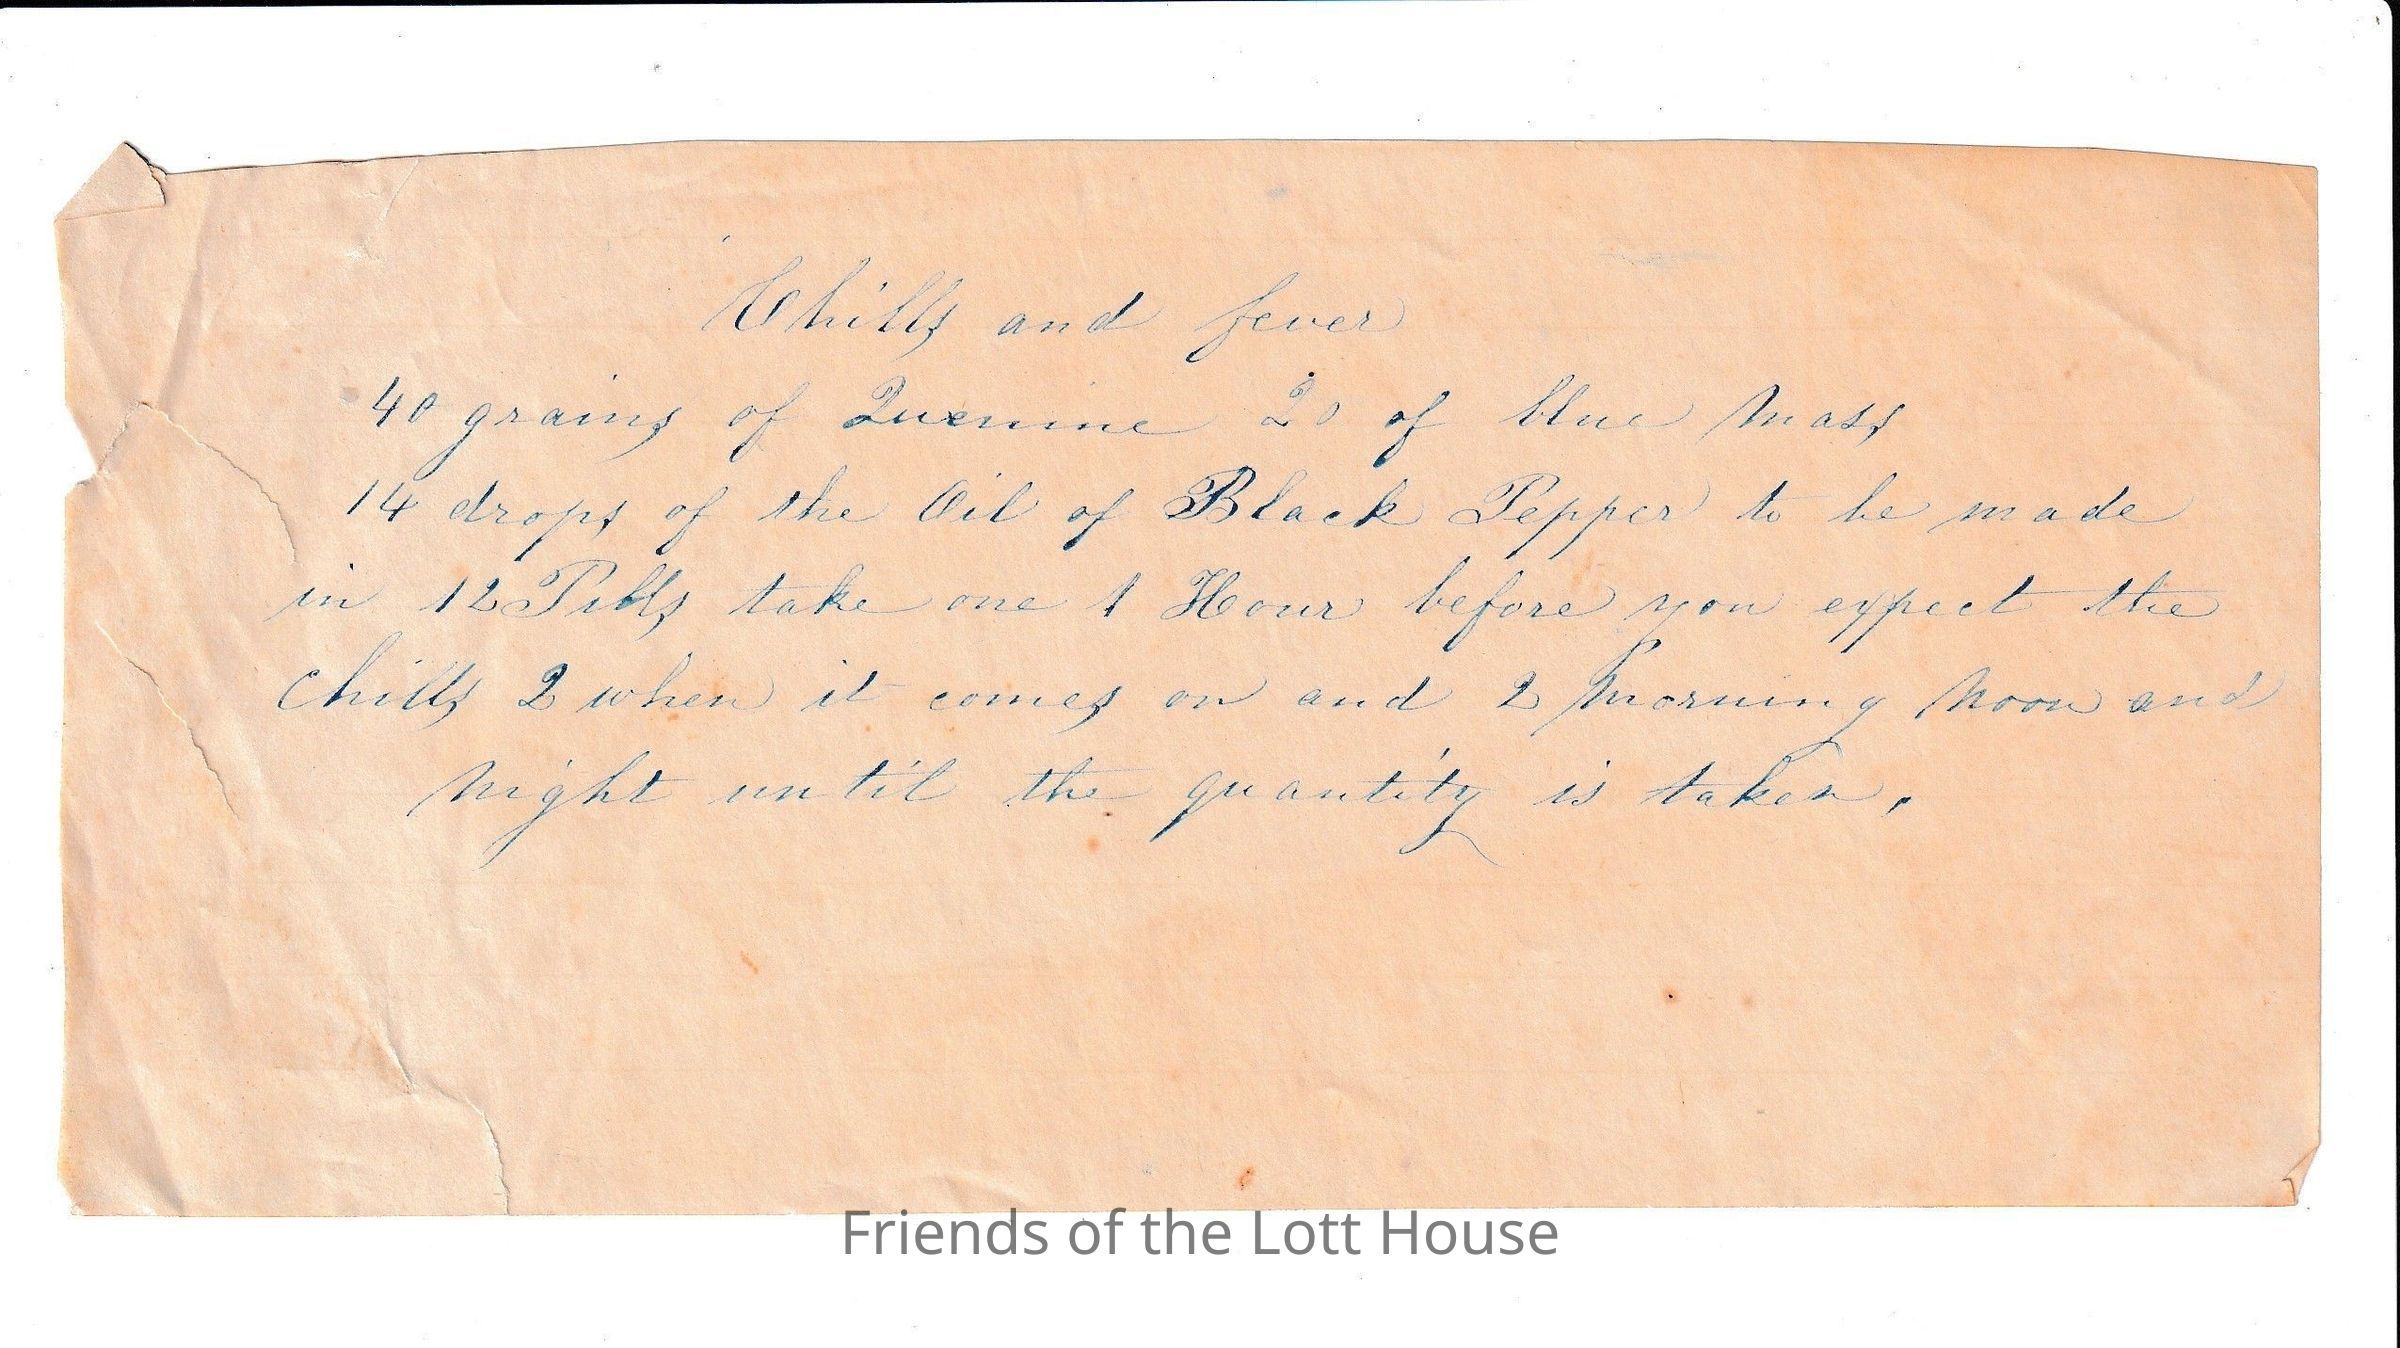 Chills and fever
40 grains of Quenine 20 of blue Mass
14 drops of the Oil of Black Pepper to be made
in 12 Pills take one 1 Hour before you expect the
Chills 2 when it comes on and 2 Morning Noon and
Night until the quantity is taken.
Friends of the Lott House